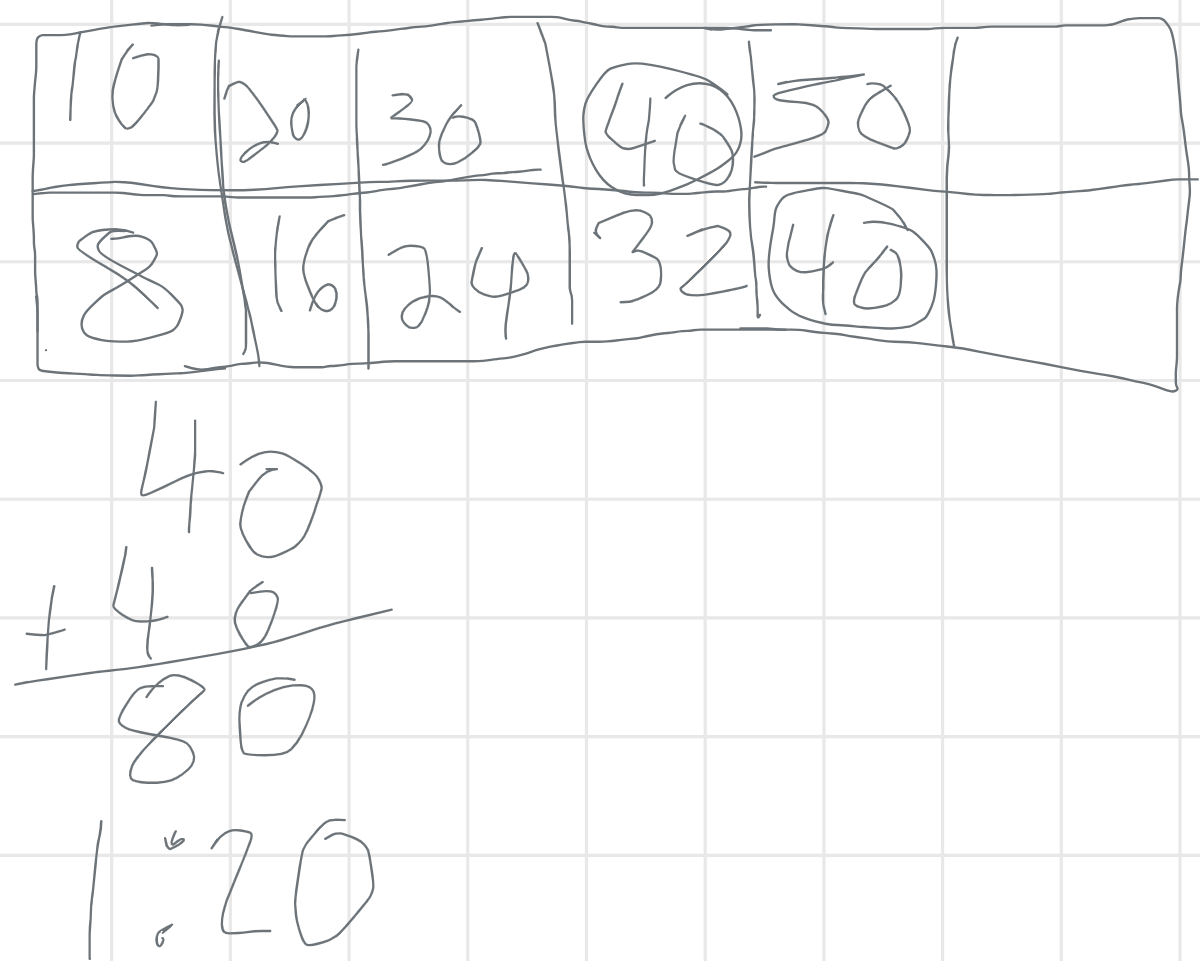 10 20 30 40 50
8 16 24 32 40
40
+ 40
80
1:20